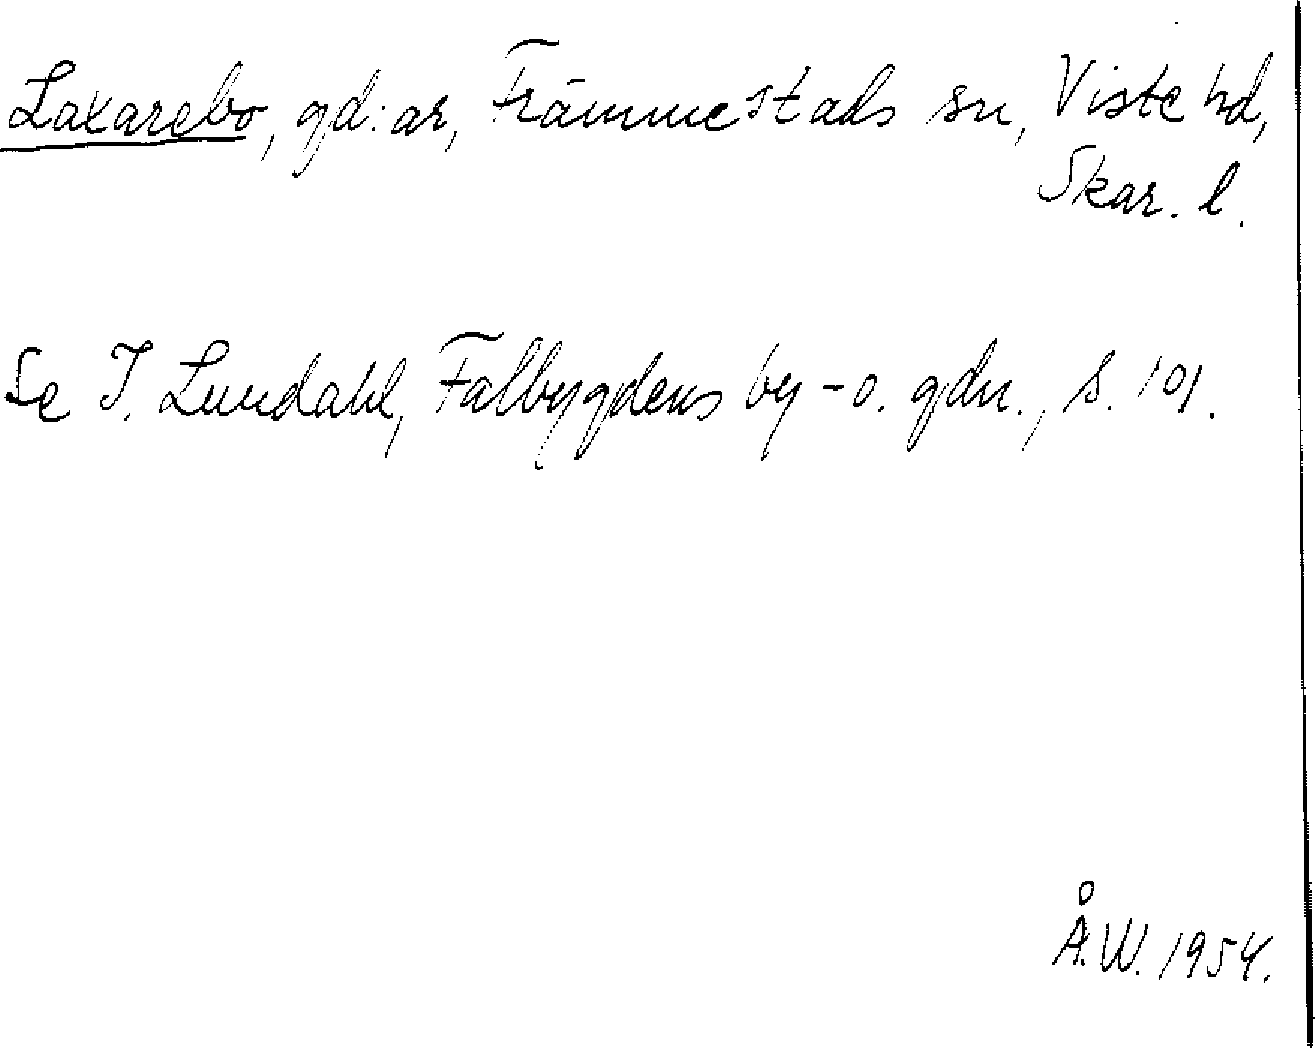 Laxarebo, gd:ar, Främmestads sn, Viste hd,
Skar. l.
Se I. Lundahl, Falbygdens by- o. gdn., s. 101.
Å.W. 1954.